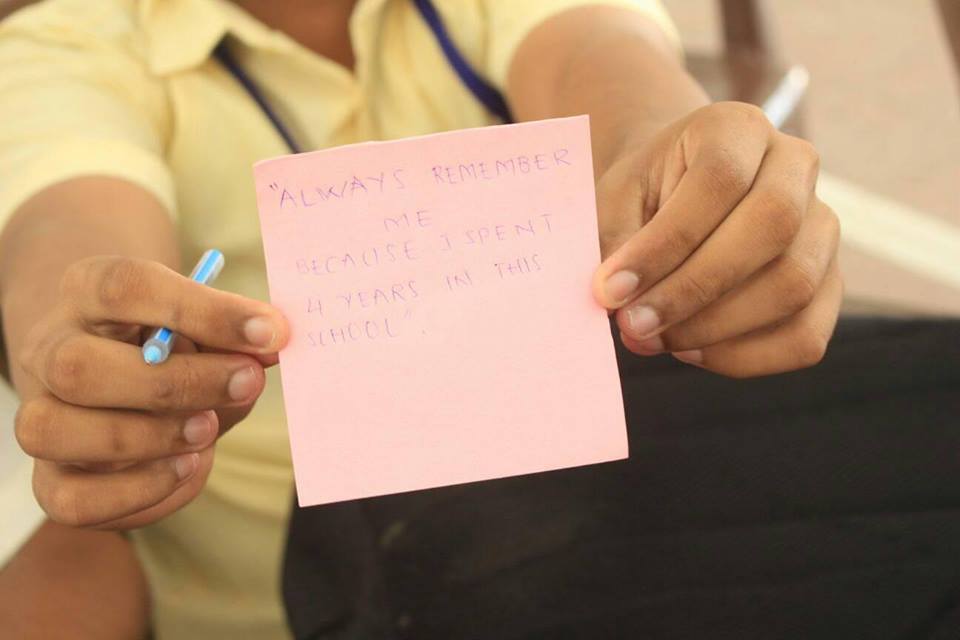 "ALWAYS REMEMBER
ME
BECAUSE I SPENT
4 YEARS IN THIS
SCHOOL".